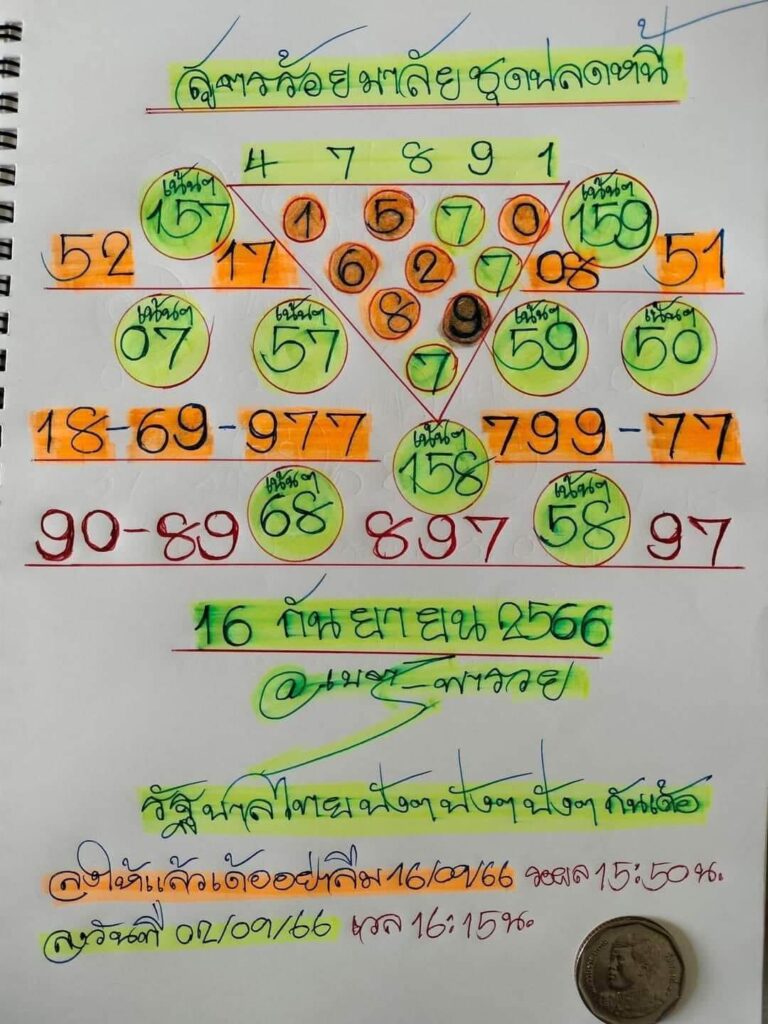 สูตรร้อยมาลัยชุดปลดหนี้
4 7 8 9 1
เน้นๆ 157 1 5 7 0 เน้นๆ 159
52 17 6 2 7 08 51
เน้นๆ 07 เน้นๆ 57 8 9 เน้นๆ 59 เน้นๆ 50
7
18-69-977 เน้นๆ 158 799-77
90-89 เน้นๆ 68 897 เน้นๆ 58 97
16 กันยายน 2566
พารวย
รัฐบาลไทย ปังๆ ปังๆ ปังๆ กันเด้อ
ลงให้แล้วเด้ออย่าลืม 16/09/66 รอผล 15:50 น.
ลงวันที่ 02/09/66 เวล 16:15 น.